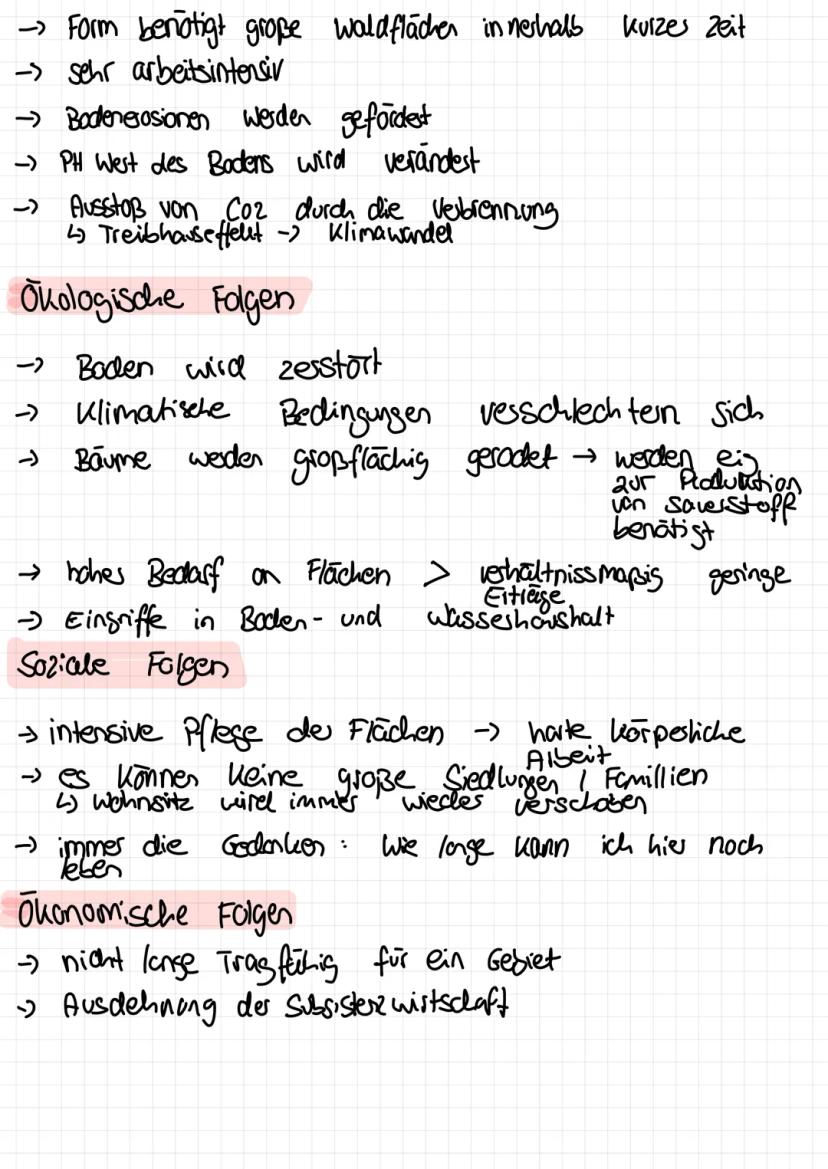 → Form benötigt große Waldflächen innerhalb kurzer Zeit
→ sehr arbeitsintensiv
→ Bodenerosionen werden gefördert
→ PH Wert des Bodens wird verändert
→ Ausstoß von CO2 durch die Verbrennung
↳ Treibhauseffekt → Klimawandel
Ökologische Folgen
→ Boden wird zerstört
→ Klimatische Bedingungen verschlechtern sich
→ Bäume werden großflächig gerodet → werden eig
zur Produktion
von Sauerstoff
benötigt
→ hoher Bedarf an Flächen > verhältnissmäßig geringe
Erträge
→ Eingriffe in Boden- und Wasserhaushalt
Soziale Folgen
→ intensive Pflege der Flächen → harte körperliche
Arbeit
→ es können keine große Siedlungen / Famillien
↳ Wohnsitz wird immer wieder verschoben
→ immer die Gedanken: Wie lange kann ich hier noch
leben
Ökonomische Folgen
→ nicht lange Tragfähig für ein Gebiet
→ Ausdehnung der Subsistenzwirtschaft